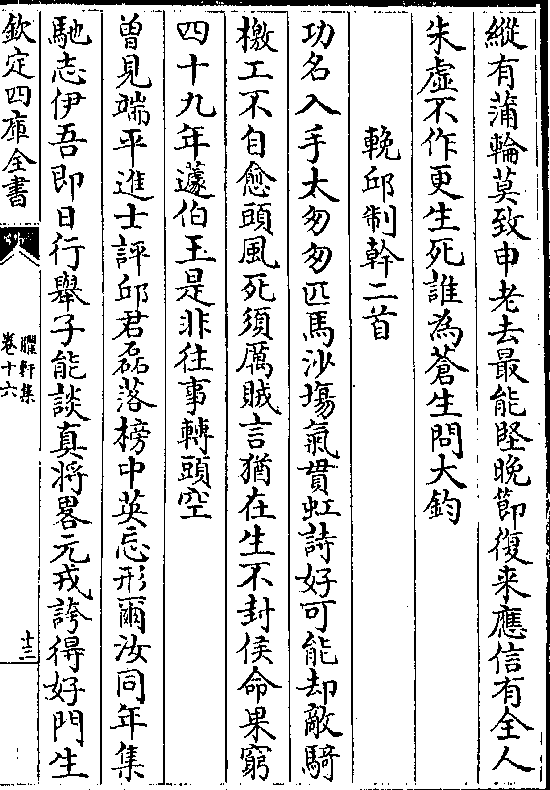 縱有蒲輪莫致申老去最能堅晚節復来應信有全人
朱虛不作更生死誰為蒼生問大鈞
輓邱制幹二首
功名入手太匆匆匹馬沙塲氣貫虹詩好可能却敵騎
檄工不自愈頭風死須厲賊言猶在生不封侯命果窮
四十九年蘧伯玉是非往事轉頭空
曽見端平進士評邱君磊落榜中英忘形爾汝同年集
馳志伊吾即日行舉子能談真將畧元戎誇得好門生
欽定四庫全書
臞軒集
卷十六
十三